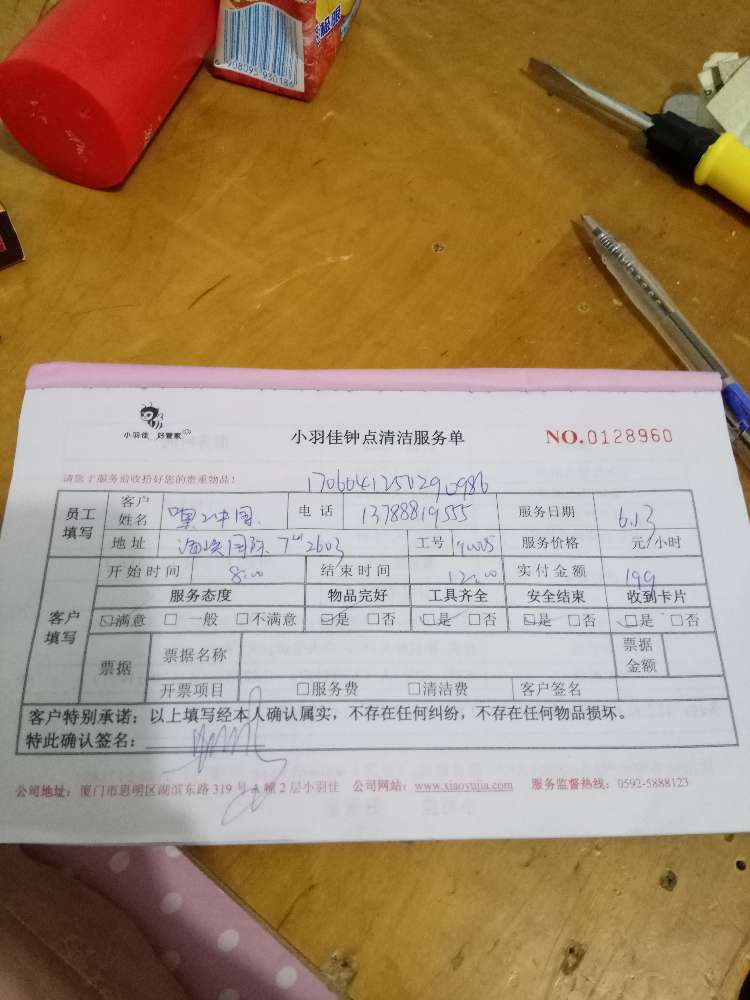 6 908095 930186
小羽佳 好管家
小羽佳钟点清洁服务单
NO.0128960
请您于服务前收拾好您的贵重物品!
1706041250290986
员工填写 客户姓名 电话 13788819555 服务日期 6.13
地址 海峡国际 7# 2603 工号 服务价格 元/小时
客户填写 开始时间 8:00 结束时间 12:00 实付金额 199
服务态度 物品完好 工具齐全 安全结束 收到卡片
☑满意 □ 一般 □不满意 ☑是 □否 ☑是 □否 ☑是 □否 ☑是 □否
票据 票据名称 票据金额
开票项目 □服务费 □清洁费 客户签名
客户特别承诺:以上填写经本人确认属实,不存在任何纠纷,不存在任何物品损坏。
特此确认签名:
公司地址:厦门市思明区湖滨东路 319 号 A 幢 2 层小羽佳 公司网站:www.xiaoyujia.com 服务监督热线:0592-5888123